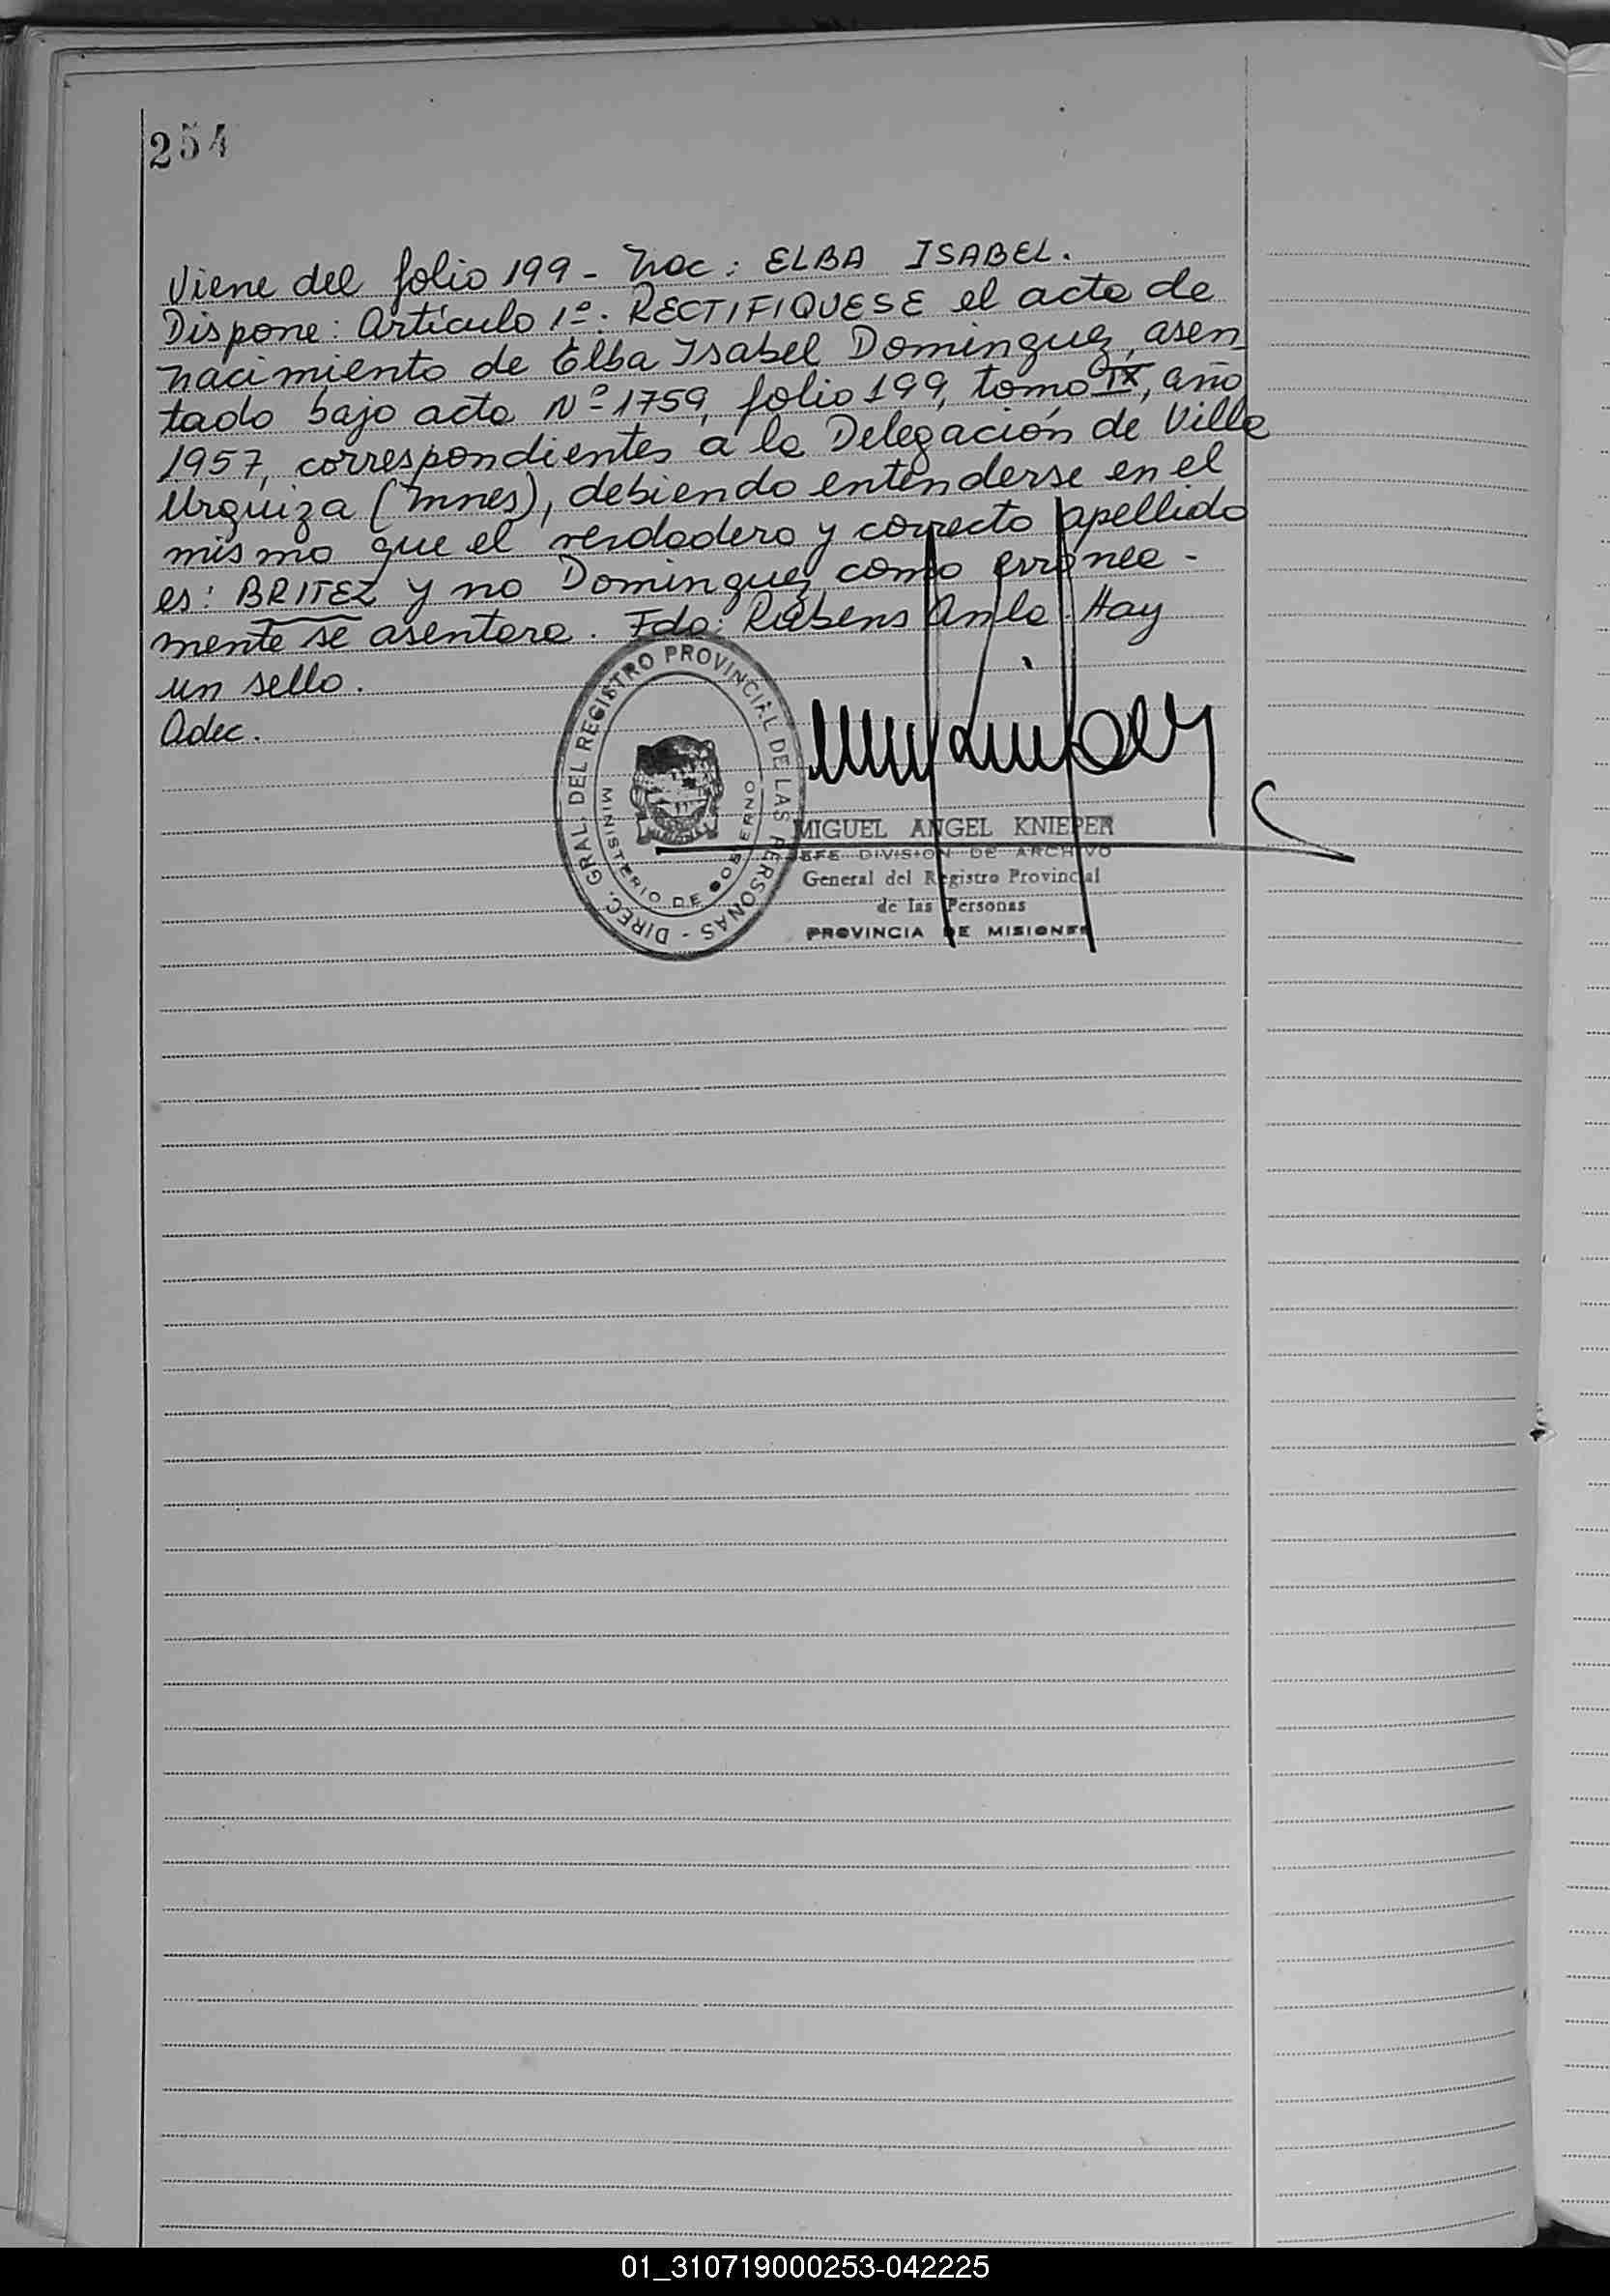 254
Viene del folio 199 - Nac: ELBA ISABEL.
Dispone: Artículo 1º: RECTIFIQUESE el acta de
nacimiento de Elba Isabel Dominguez, asen
tado bajo acta Nº 1759, folio 199, tomo IX, año
1957, correspondientes a la Delegación de Villa
Urquiza (Mnes), debiendo entenderse en el
mismo que el verdadero y correcto apellido
es: BRITEZ y no Dominguez como erronea-
mente se asentara. Fdo: Rubens Hay
un sello.
Adec.
DIREC. GRAL. DEL REGISTRO PROVINCIAL DE LAS PERSONAS -
MINISTERIO DE GOBIERNO
MIGUEL ANGEL KNIEPER
JEFE DIVISION DE ARCHIVO
General del Registro Provincial
de las Personas
PROVINCIA DE MISIONES
01_310719000253-042225